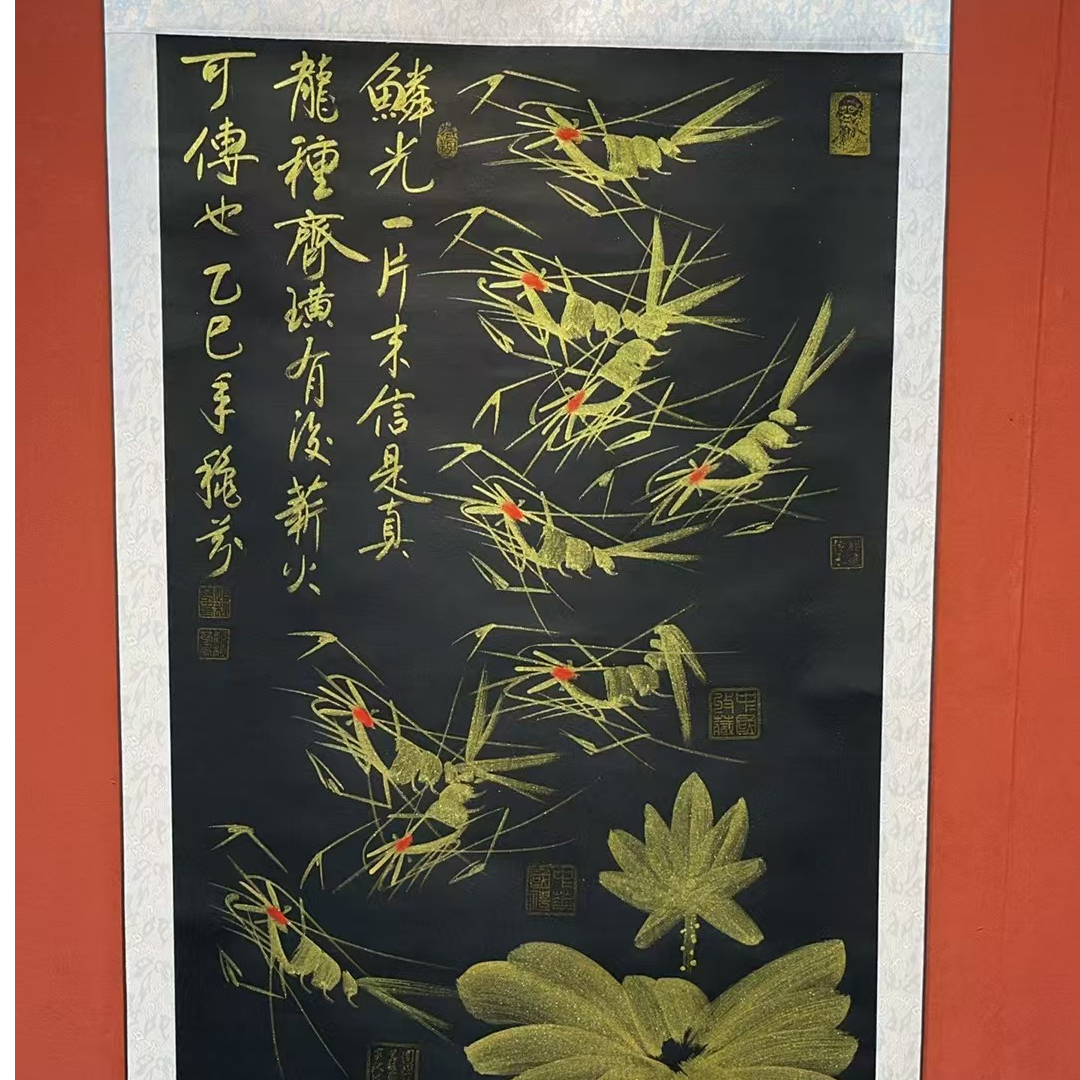 鱗光一片未信是真
龍種齊璜有後薪火
可傳也乙巳年芬
中國
收藏
中華
國禮